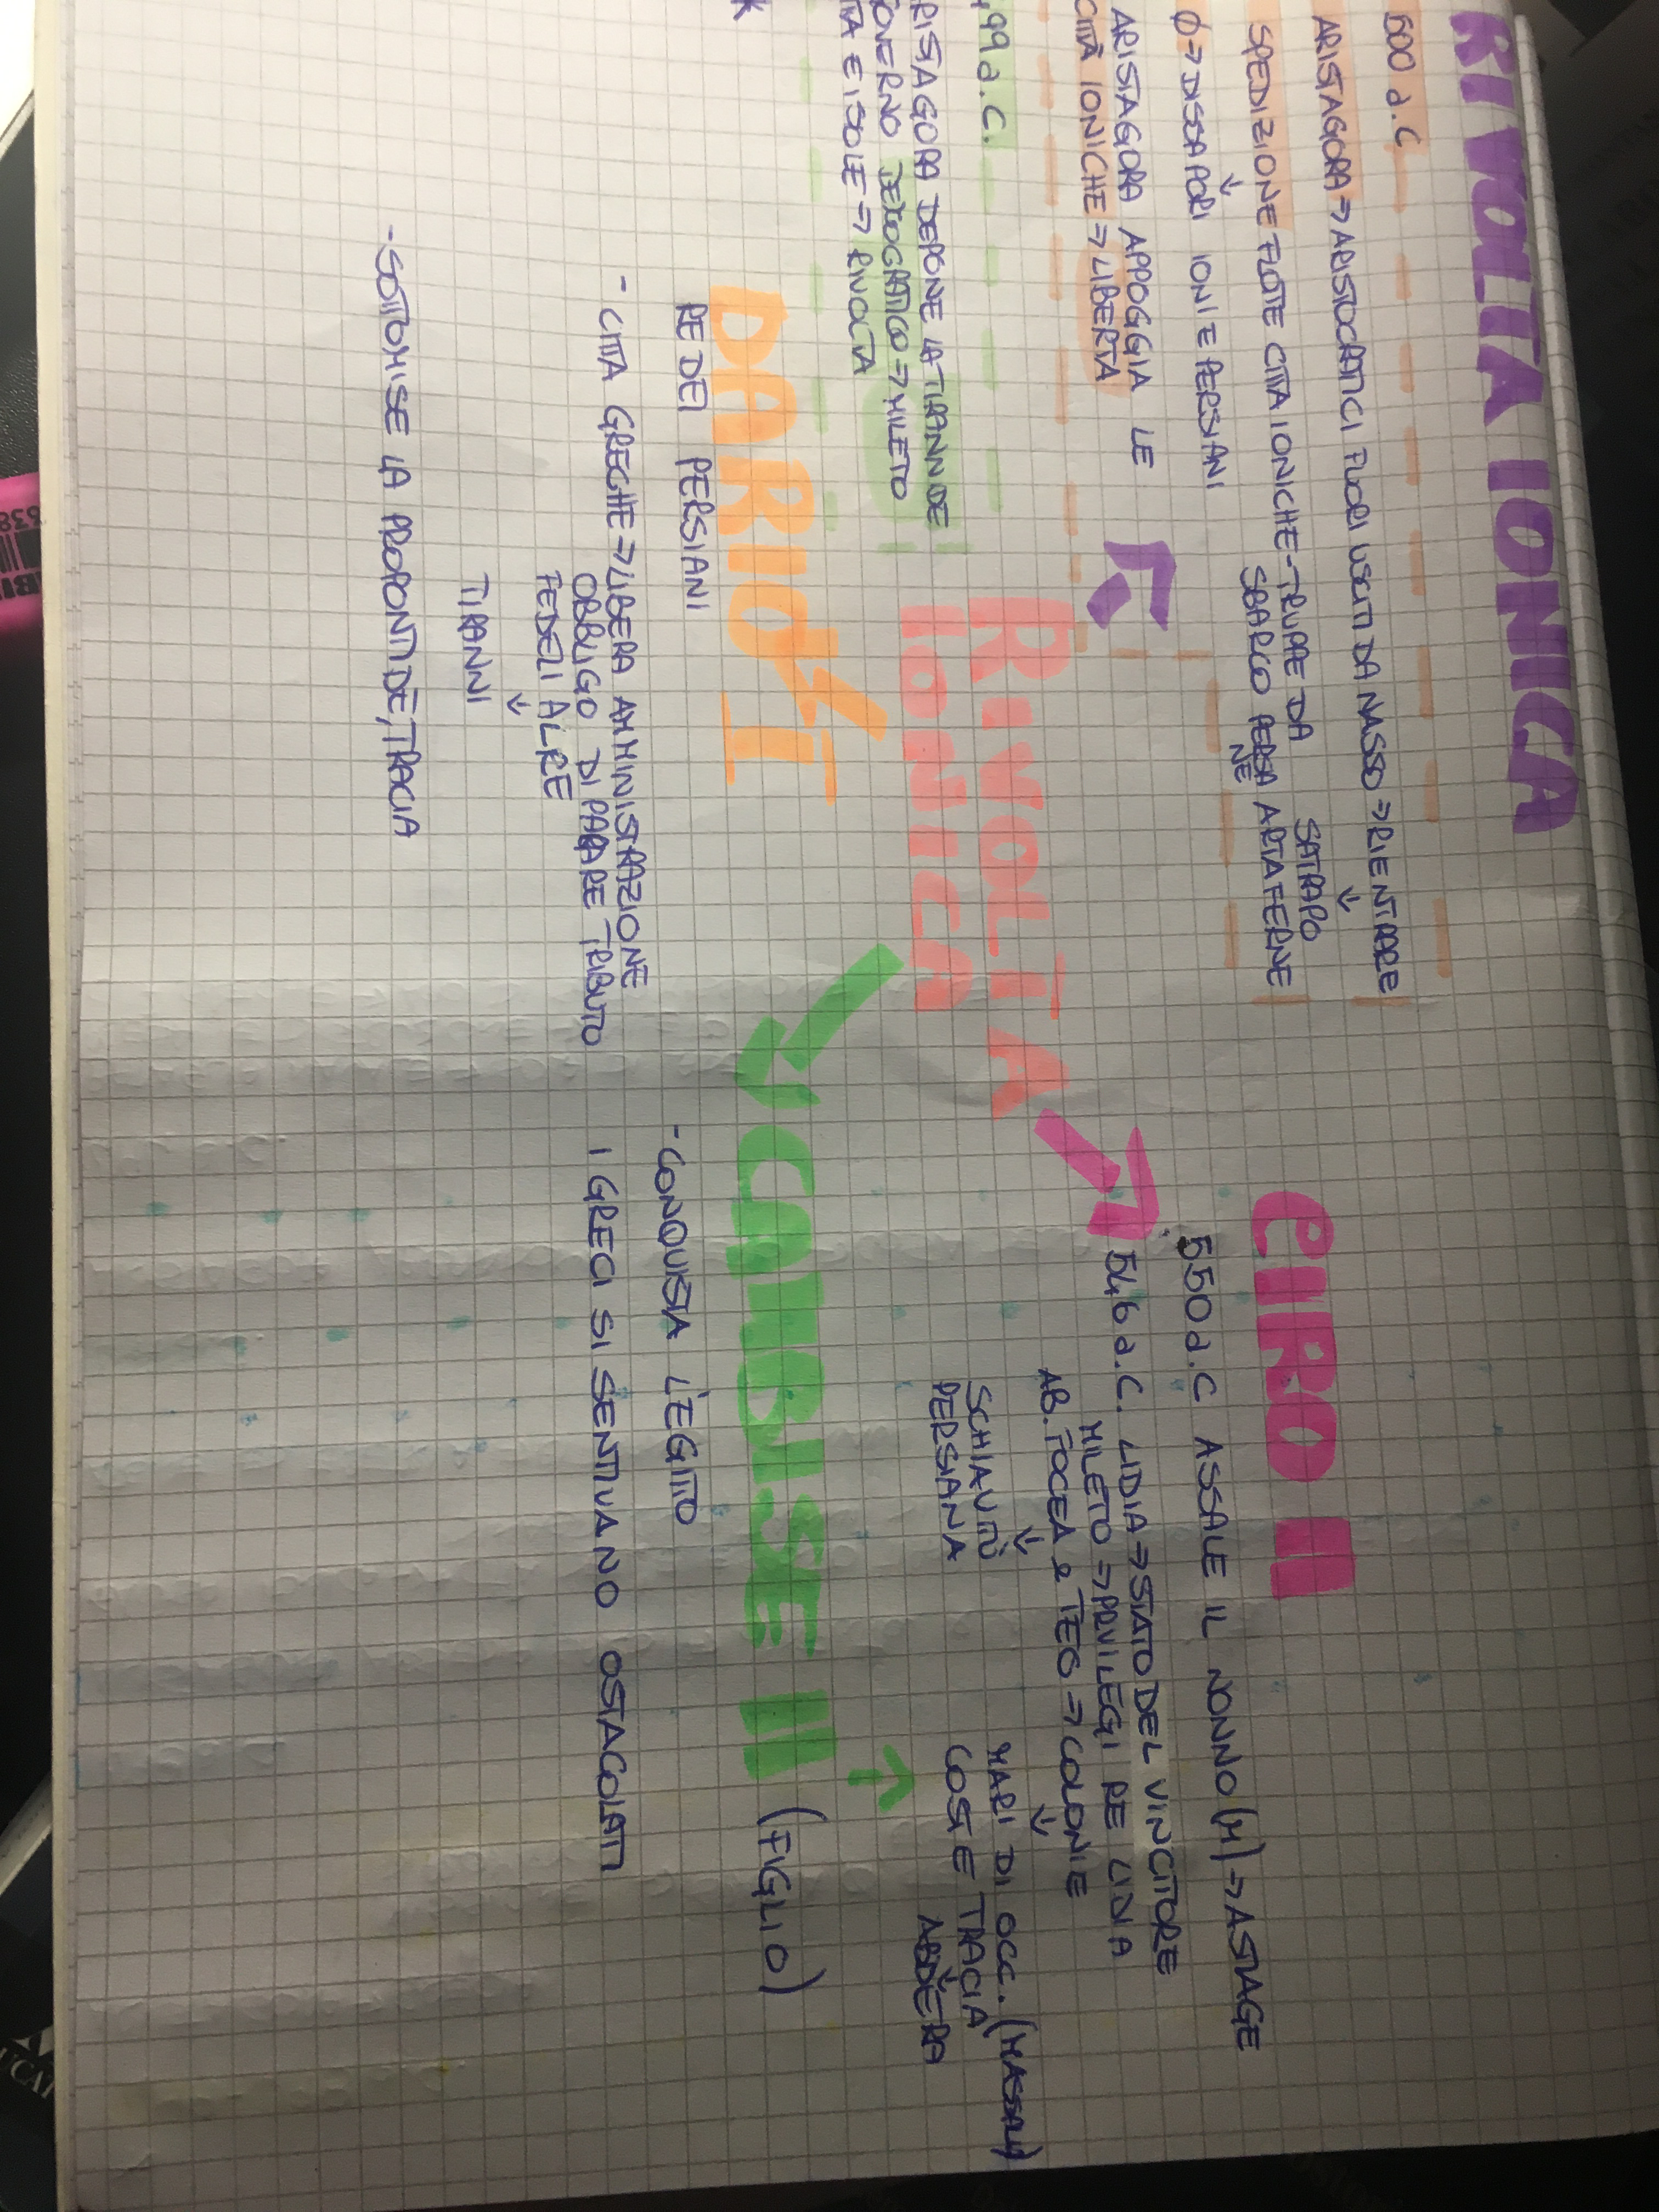 RIVOLTA IONICA
500 a.C
ARISTAGORA => ARISTOCRATICI FUORI USCITI DA NASSO => RIENTRARE
↓
SPEDIZIONE FLOTTE CITTA IONICHE - TRUPPE DA
SBARCO PERSIANE
SATRAPO
ARTAFERNE
↓
Ø => DISSAPORI IONI E PERSIANI
ARISTAGORA APPOGGIA LE
CITTÀ IONICHE => LIBERTÀ
499 a.C.
ARISTAGORA DEPONE LA TIRANNIDE
GOVERNO DEMOCRATICO => MILETO
E ISOLE => RIVOLTA
RIVOLTA
IONICA
CIRO II
550 a.C ASSALE IL NONNO (M) => ASTIAGE
546 a.C. LIDIA => STATO DEL VINCITORE
MILETO => PRIVILEGI RE LIDIA
AB. FOCEA e TEO => COLONIE
↓
SCHIAVITÙ
PERSIANA
↓
MARI DI OCC. (MASSALIA)
COSTE TRACIA
↓
ABDÈRA
DARIO I
RE DEI PERSIANI
- CITTA GRECHE => LIBERA AMMINISTRAZIONE
OBBLIGO DI PAGARE TRIBUTO
FEDELI AL RE
↓
TIRANNI
- SOTTOMISE LA PROPONTIDE, TRACIA
CAMBISE II (FIGLIO)
- CONQUISTA L'EGITTO
I GRECI SI SENTIVANO OSTACOLATI